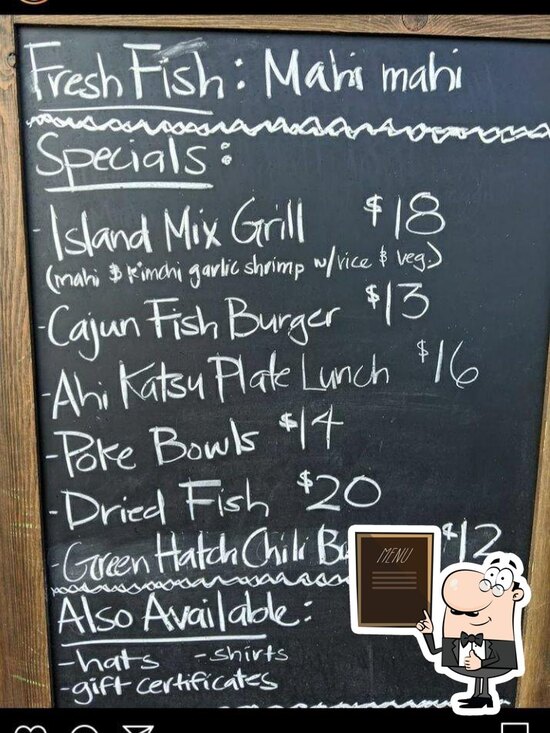 Fresh Fish: Mahi mahi
Specials:
- Island Mix Grill $18
(mahi & kimchi garlic shrimp w/rice & veg.)
- Cajun Fish Burger $13
- Ahi Katsu Plate Lunch $16
- Poke Bowls $14
- Dried Fish $20
- Green Hatch Chili $12
MENU
Also Available:
- hats - shirts
- gift certificates